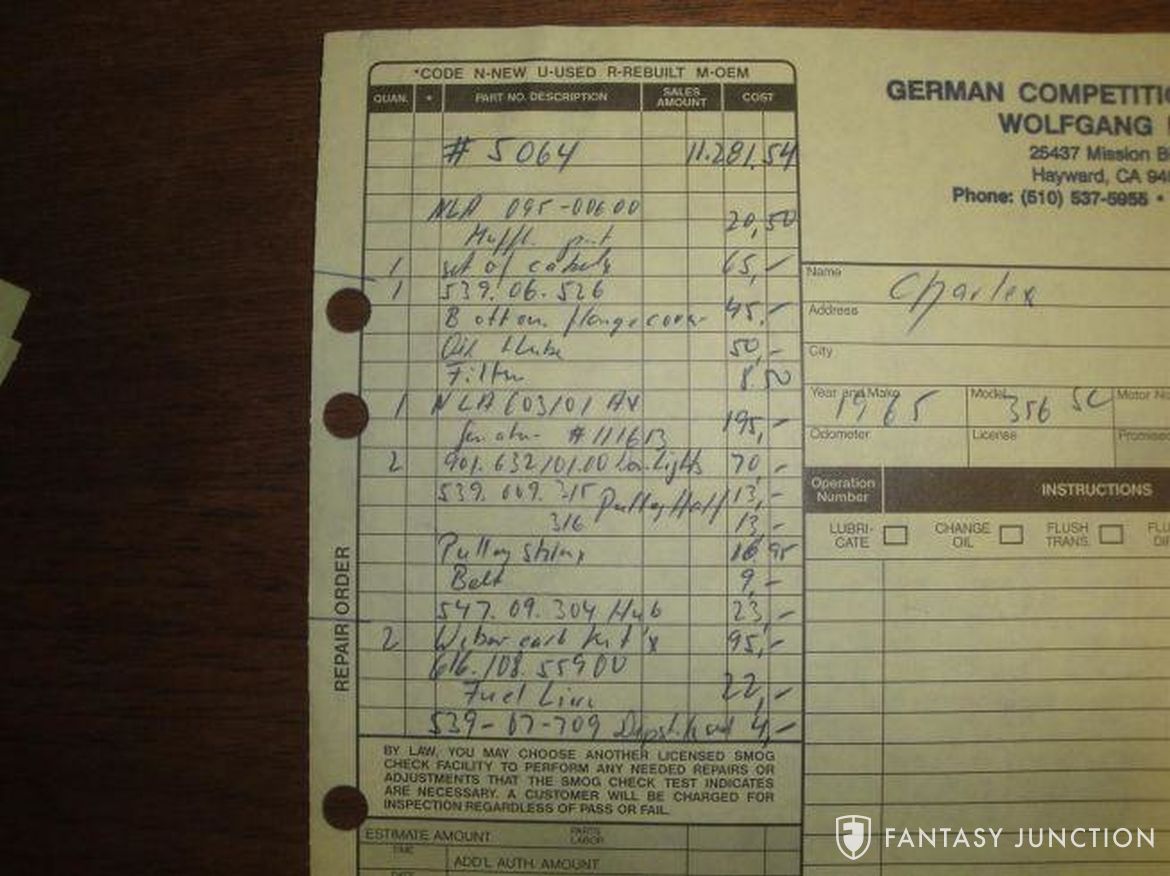 *CODE N-NEW U-USED R-REBUILT M-OEM
QUAN. * PART NO. DESCRIPTION SALES AMOUNT COST
# 5064 11.281,54
NLA 095-00600 20,50
Muffl.
1 set of 65,-
1 539.06.526
Bottom flange cover 45,-
Oil 50,-
Filter 8.50
1 NLA 603101 AX
#111613 195,-
2 901.632.101.00 70,-
539.009.315 Pulley Half 13,-
316 13,-
Pulley 16 95
Belt 9,-
547.09.304 Hub 23,-
2 95,-
616.108.559 00
Fuel Line 22,-
539-07-709 4,-
BY LAW, YOU MAY CHOOSE ANOTHER LICENSED SMOG
CHECK FACILITY TO PERFORM ANY NEEDED REPAIRS OR
ADJUSTMENTS THAT THE SMOG CHECK TEST INDICATES
ARE NECESSARY. A CUSTOMER WILL BE CHARGED FOR
INSPECTION REGARDLESS OF PASS OR FAIL.
ESTIMATE AMOUNT PARTS LABOR
TIME
ADD'L AUTH. AMOUNT
REPAIR ORDER
GERMAN COMPETITI
WOLFGANG
25437 Mission B
Hayward, CA 94
Phone: (510) 537-5955 •
Name Charles
Address
City
Year and Make 1965 Model 356 SC Motor No
Odometer License Promised
Operation Number INSTRUCTIONS
LUBRICATE CHANGE OIL FLUSH TRANS. FLU DIF
FANTASY JUNCTION